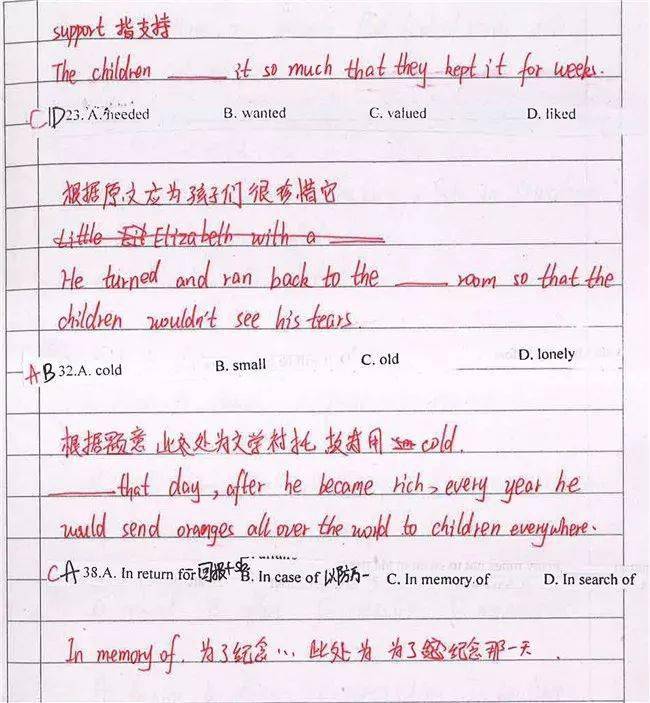 support 指支持
The children ______ it so much that they kept it for weeks.
C D 23. A. needed B. wanted C. valued D. liked
根据原文应为孩子们很珍惜它
Little Elizabeth with a ____
He turned and ran back to the ____ room so that the
children wouldn't see his tears
A B 32.A. cold B. small C. old D. lonely
根据题意 此处为文学衬托 故背用 cold.
______ that day, after he became rich, every year he
would send oranges all over the world to children everywhere.
C A 38.A. In return for 回报+sb B. In case of 以防万一 C. In memory of D. In search of
In memory of. 为了纪念… 此处为 为了纪念那一天.